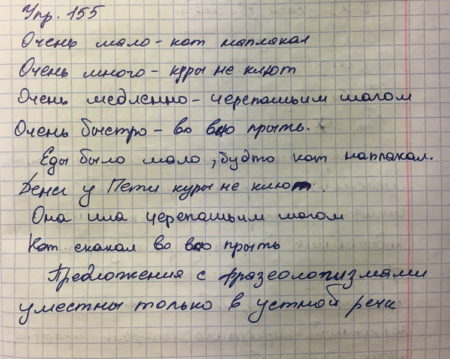 Упр. 155
Очень мало - кот наплакал
Очень много - куры не клюют
Очень медленно - черепашьим шагом
Очень быстро - во всю прыть.
Еды было мало, будто кот наплакал.
Денег у Пети куры не клюют.
Она шла черепашьим шагом
Кот скакал во всю прыть
Предложения с фразеологизмами
уместны только в устной речи